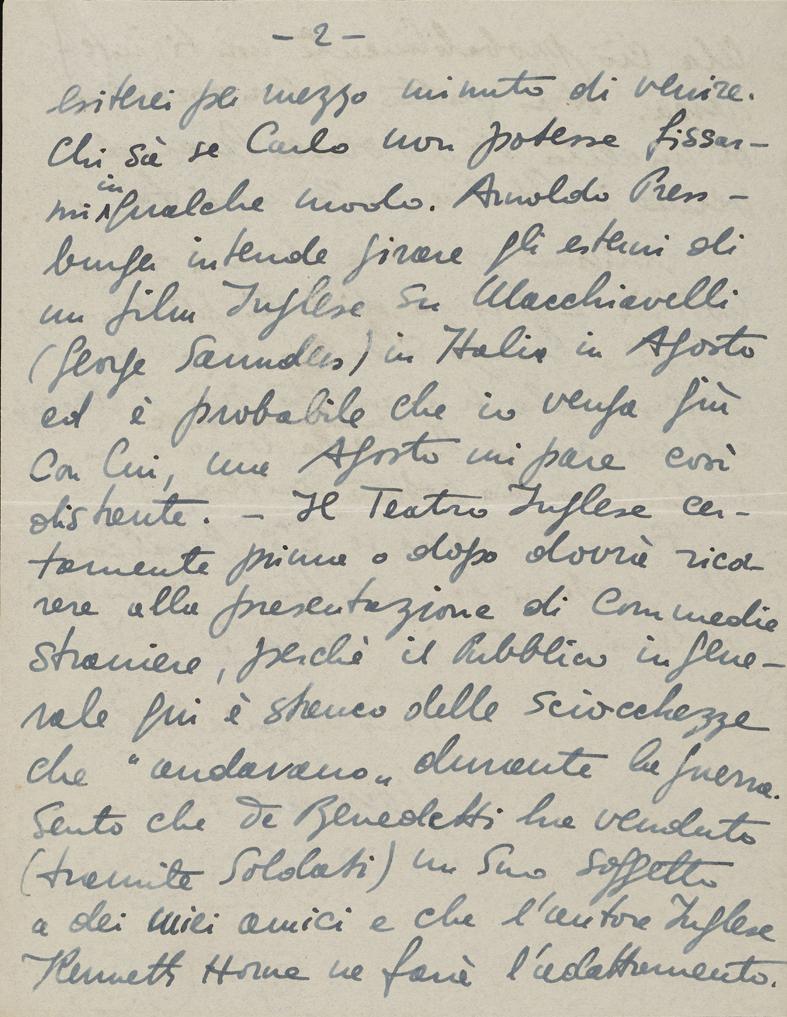 - 2 -
esiterei per mezzo minuto di venire.
Chi sà se Carlo non potesse fissar-
mi in qualche modo. Arnoldo Press-
burger intende girare gli esterni di
un film Inglese su Macchiavelli
(George Saunders) in Italia in Agosto
ed è probabile che io venga giù
con lui, ma Agosto mi pare così
distante. - Il Teatro Inglese cer-
tamente prima o dopo dovrà ricor-
rere alla presentazione di Commedie
Straniere, perchè il Pubblico in gene-
rale qui è stanco delle sciocchezze
che "andavano" durante la guerra.
Sento che De Benedetti ha venduto
(tramite Soldati) un suo soggetto
a dei miei amici e che l'autore Inglese
Kenneth Horne ne farà l'adattamento.